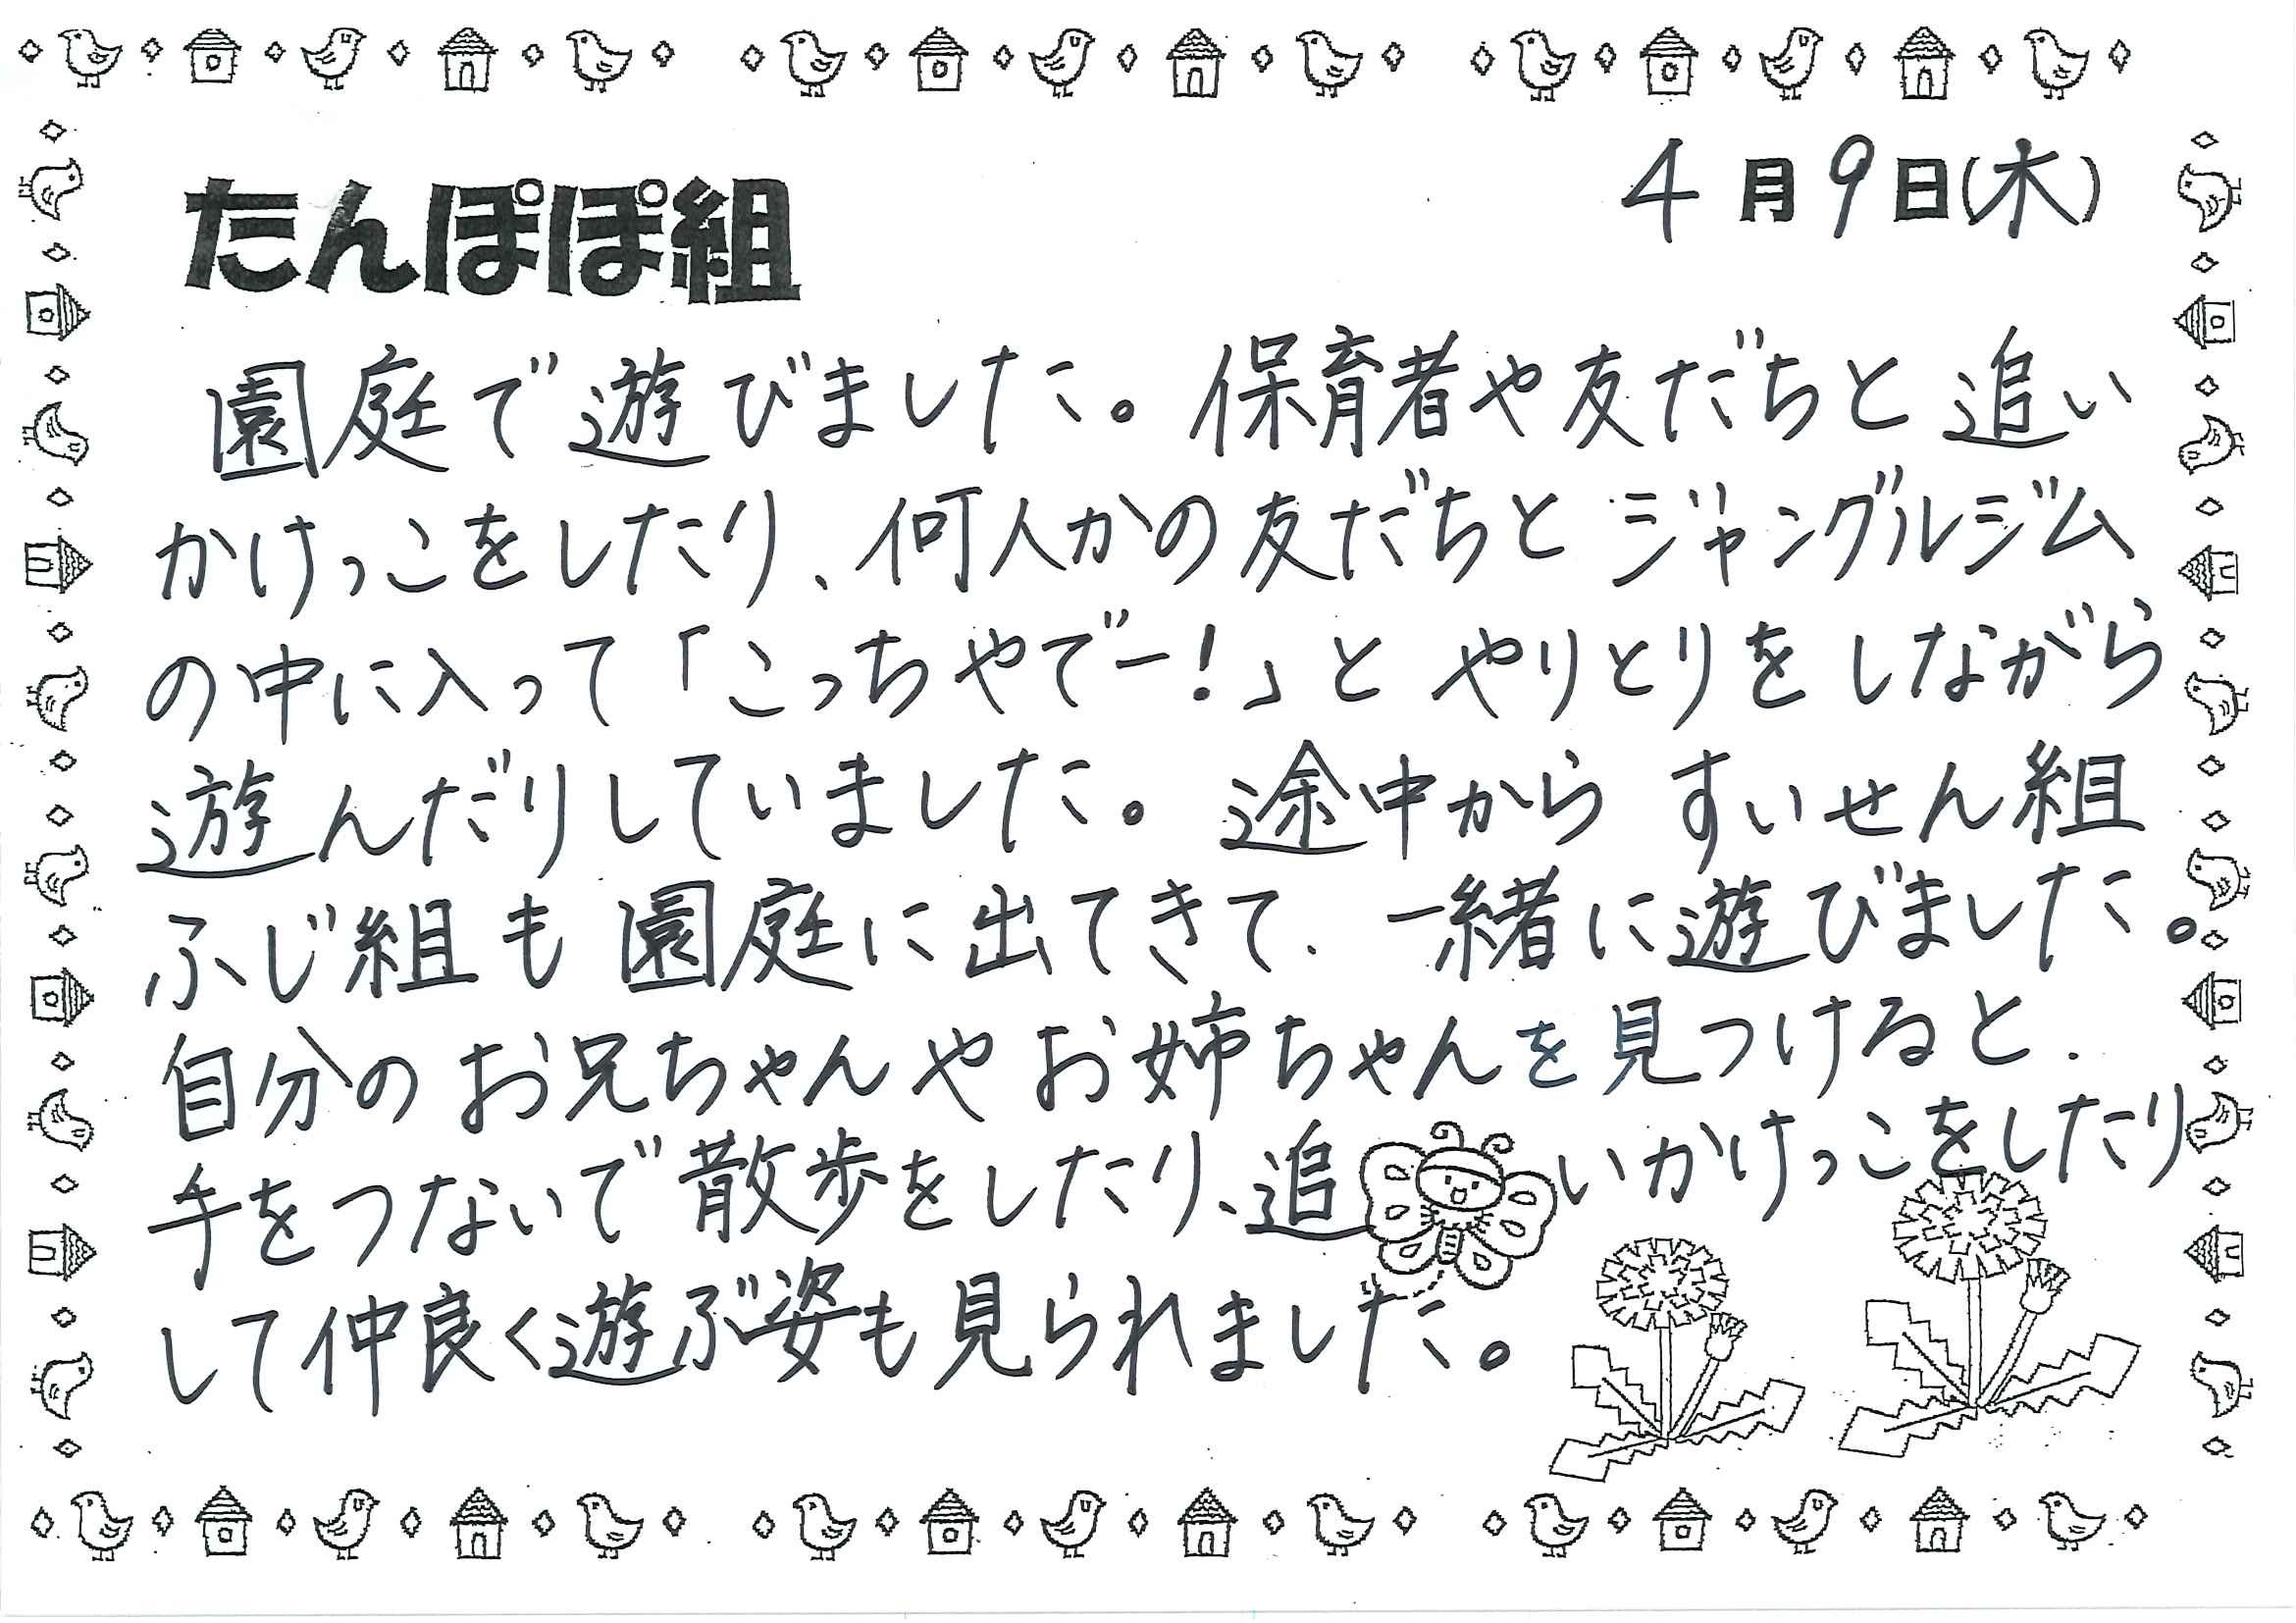 たんぽぽ組
4月9日(木)
園庭で遊びました。保育者や友だちと追い
かけっこをしたり、何人かの友だちとジャングルジム
の中に入って「こっちやでー!」とやりとりをしながら
遊んだりしていました。途中からすいせん組
ふじ組も園庭に出てきて、一緒に遊びました。
自分のお兄ちゃんやお姉ちゃんを見つけると、
手をつないで散歩をしたり、追いかけっこをしたり
して仲良く遊ぶ姿も見られました。